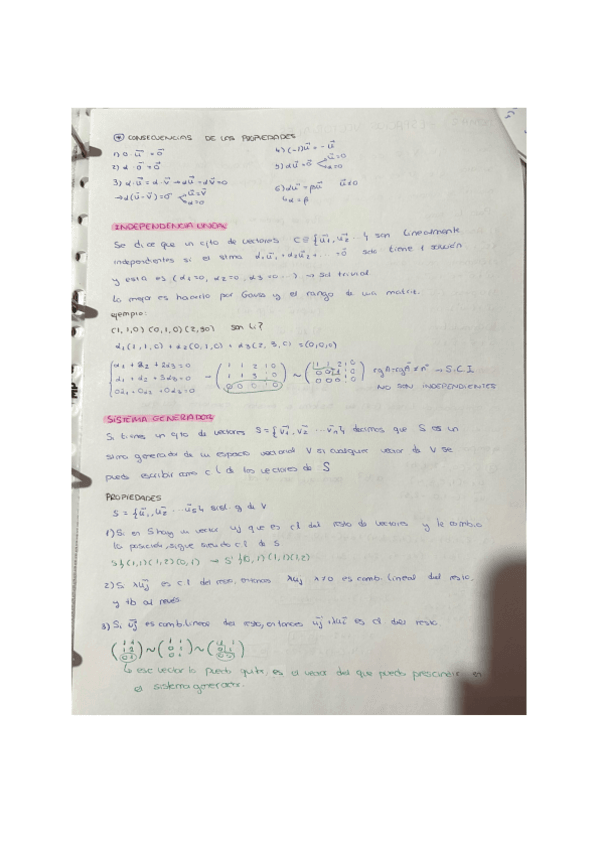 CONSECUENCIAS DE LAS PROPIEDADES
1) 0·u⃗ = 0⃗
2) α·0⃗ = 0⃗
3) α·u⃗ = α·v⃗ → αu⃗ - αv⃗ = 0
→ α(u⃗-v⃗) = 0⃗ < u⃗=v⃗ α=0
4) (-1)u⃗ = -u⃗
5) αu⃗ = 0⃗ < u⃗=0 α=0
6) αu⃗ = βu⃗ u⃗≠0
↳ α = β
INDEPENDENCIA LINEAL
Se dice que un cjto de vectores {u⃗1, u⃗2 ...} son linealmente
independientes si el stma α1u⃗1 + α2u⃗2 + ... = 0⃗ solo tiene 1 solución
y esta es (α1=0, α2=0, α3=0 ...) → Sol trivial
Lo mejor es hacerlo por Gauss y el rango de una matriz.
ejemplo:
(1,1,0) (0,1,0) (2,3,0) son Li?
α1(1,1,0) + α2(0,1,0) + α3(2,3,0) = (0,0,0)
→ S.C.I
NO SON INDEPENDIENTES
SISTEMA GENERADOR
Si tienes un cjto de vectores S = {v⃗1, v⃗2 ... v⃗n} decimos que S es un
stma generador de un espacio vectorial V si cualquier vector de V se
puede escribir como c l de los vectores de S
PROPIEDADES
S = {u⃗1, u⃗2 ... u⃗s} sist. g de V
1) Si en S hay un vector u⃗j que es c l del resto de vectores y le cambio
la posición, sigue siendo c l de S
S{(1,1)(1,2)(0,1) → S'{(0,1)(1,1)(1,2)
2) S es c.l del resto, entonces λu⃗j λ≠0 es comb. lineal del resto,
y tb al revés
3) Si u⃗j es comb. lineal del resto, entonces es cl del resto.
↳ ese vector lo puedo quitar, es el vector del que puedo prescindir en
el sistema generador.